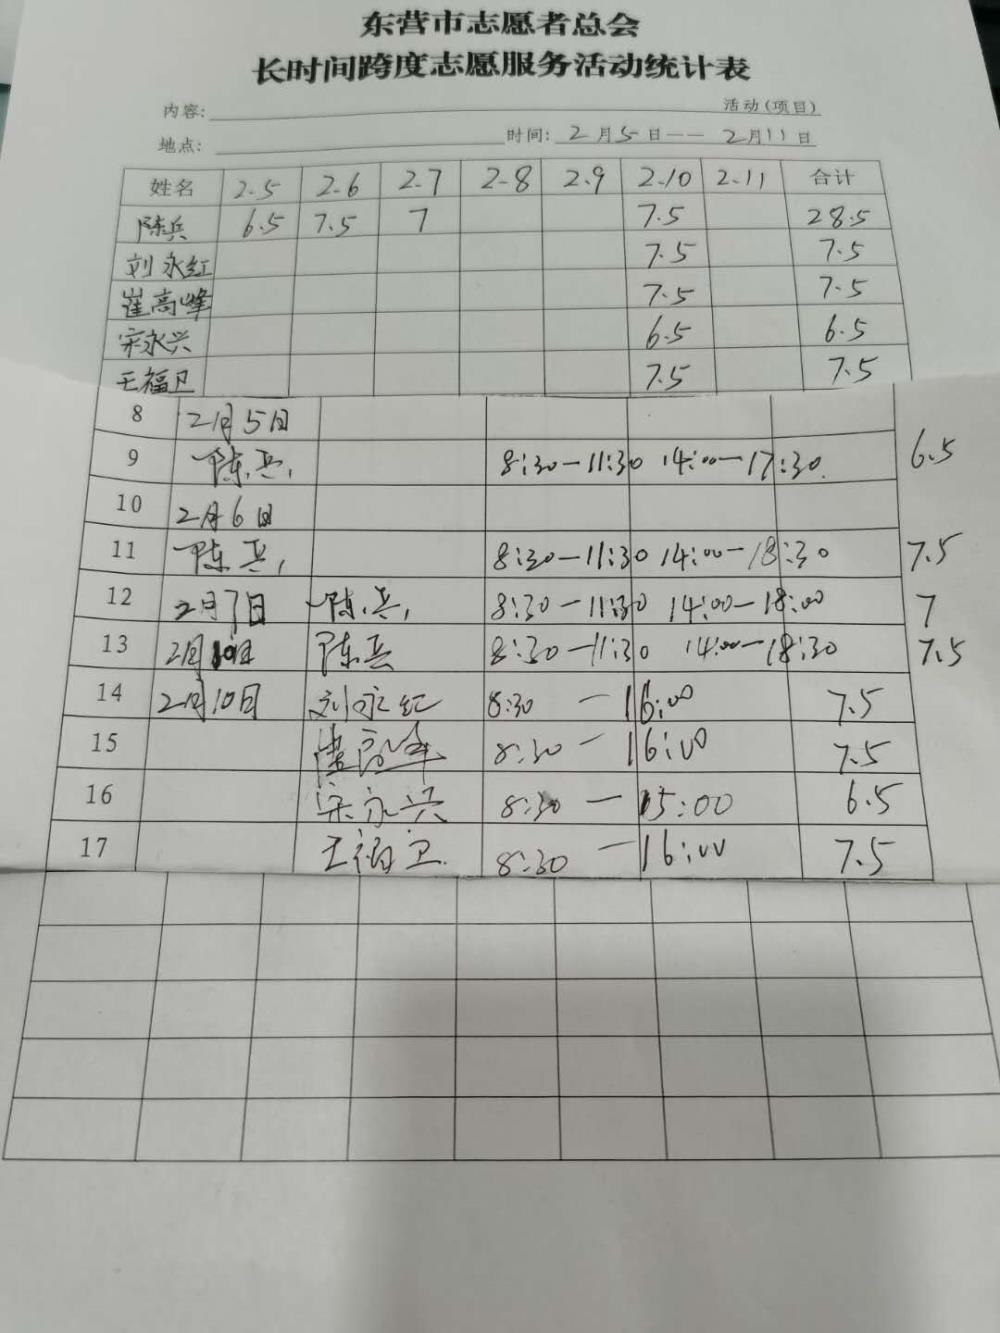 东营市志愿者总会
长时间跨度志愿服务活动统计表
内容: 活动(项目)
地点: 时间: 2月5日——2月11日
姓名 2-5 2.6 2.7 2-8 2.9 2.10 2.11 合计
陈兵 6.5 7.5 7 7.5 28.5
刘永红 7.5 7.5
崔高峰 7.5 7.5
宋永兴 6.5 6.5
王福卫 7.5 7.5
8 2月5日
9 陈兵, 8:30-11:30 14:00-17:30. 6.5
10 2月6日
11 陈兵, 8:30-11:30 14:00-18:30 7.5
12 2月7日 陈兵, 8:30-11:30 14:00-18:00 7
13 2月10日 陈兵 8:30-11:30 14:00-18:30 7.5
14 2月10日 刘永红 8:30 - 16:00 7.5
15 崔高峰 8:30 - 16:00 7.5
16 宋永兴 8:30 - 15:00 6.5
17 王福卫. 8:30 - 16:00 7.5